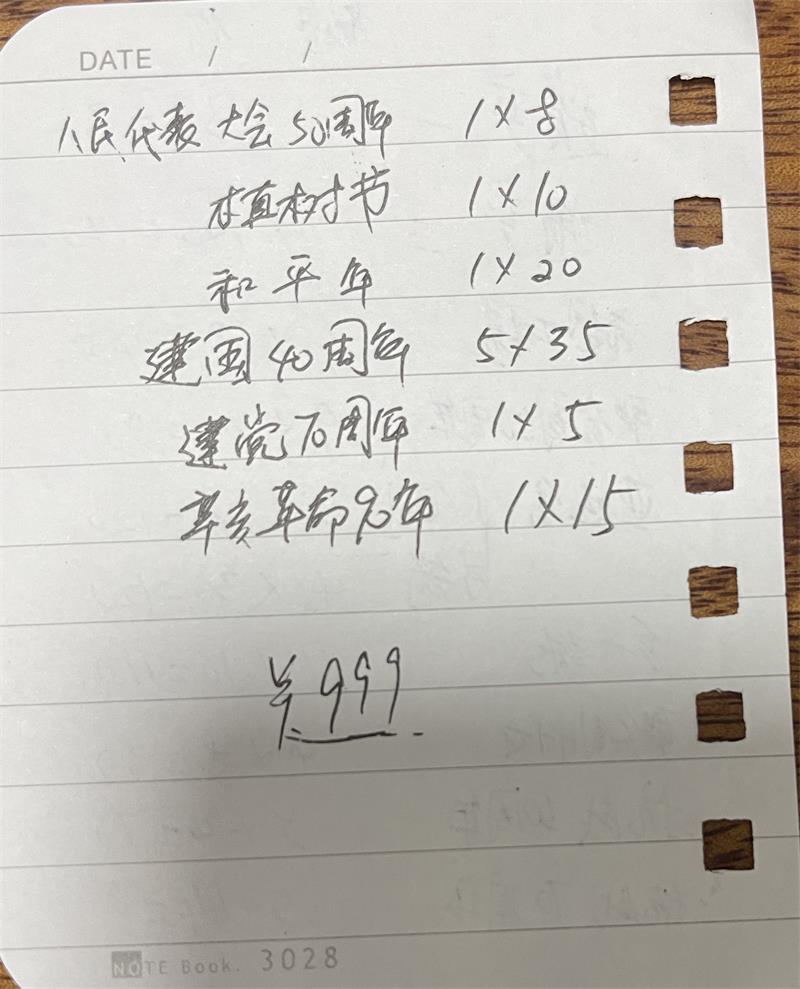 DATE / /
人民代表大会50周年 1×8
植树节 1×10
和平年 1×20
建国40周年 5×35
建党70周年 1×5
辛亥革命90年 1×15
¥999.
NOTE Book. 3028